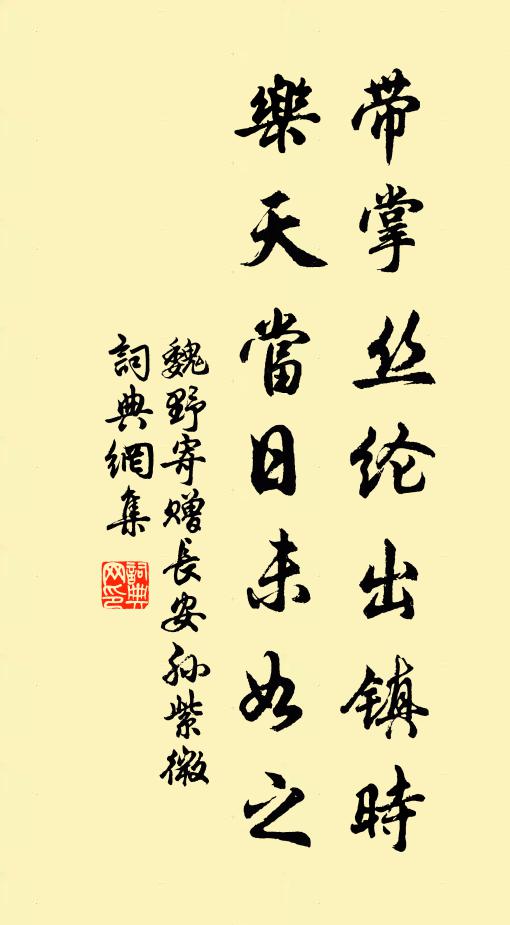 带掌丝纶出镇時
樂天當日未如之
魏野寄赠長安孙紫微
詞典網集
詞典网印